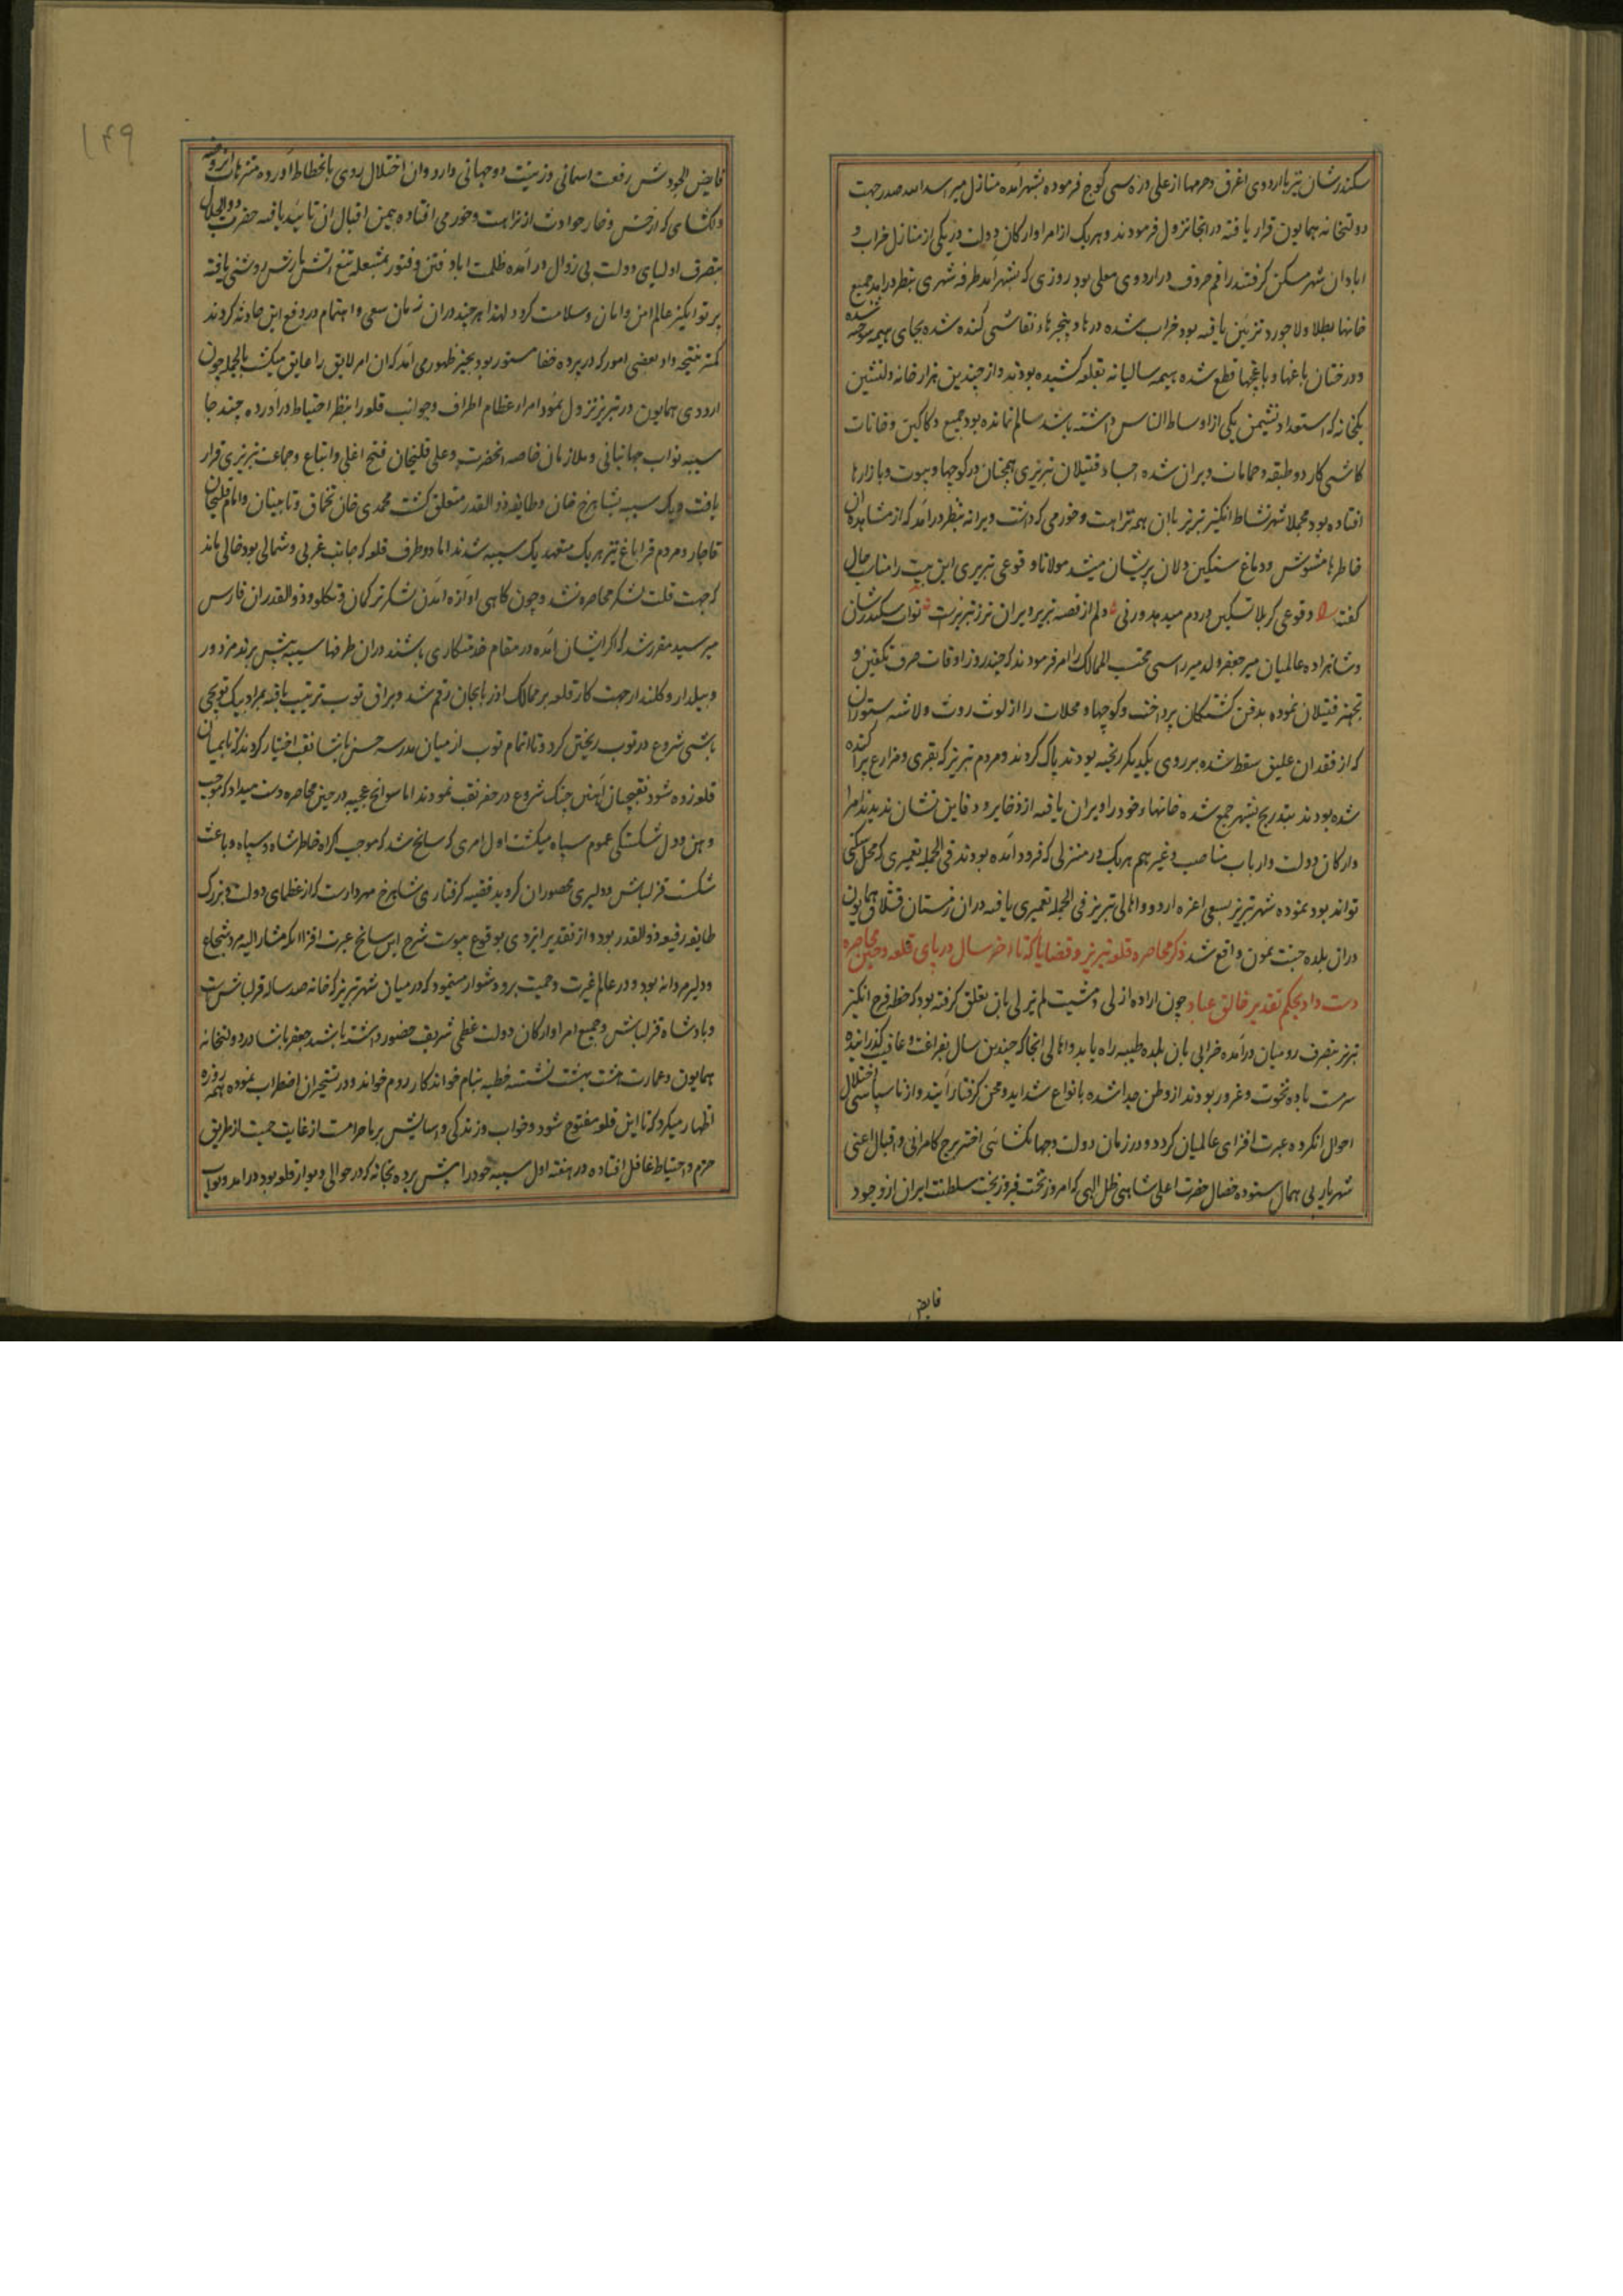 سکندرشان نیز با اردوی اغرق و حرمها از علی دره سی کوچ فرموده بشهر آمده منازل میر اسدالله صدر جهت
دولتخانه همایون قرار یافته در انجا نزول فرمودند و هر یک از امرا و ارکان دولت در یکی از منازل خراب و
ابادان شهر مسکن کرفتند راقم حروف در اردوی معلی بود روزی که بشهر آمد طرفه شهری بنظر درآمد جمیع
خانها بطلا و لاجورد تزیین یافته بود خراب شده درها و پنجرهاء نقاشی کنده شده بجای هیمه سوخته شده
و درختان باغها و باغچها قطع شده هیمه سالیانه بقلعه کشیده بودند و از چندین هزار خانه دلنشین
یکخانه که استعداد نشیمن یکی از اوساط الناس داشته باشد سالم نمانده بود جمیع دکاکین و خانات
کاشی کار دو طبقه و حمامات ویران شده اجساد قتیلان تبریزی همچنان در کوچها و بیوت و بازارها
افتاده بود مجملا شهر نشاط انگیز تبریز با ان همه نزاهت و خورمی که داشت ویرانه بنظر درآمد که از مشاهده ان
خاطرها مشوش و دماغ سنکین دلان پریشان میشد مولانا وقوعی تبریزی این بیت را مناسب حال
گفته وقوعی کربلا تسکین دردم میدهد ورنی دلم از قصه تبریز ویران تر ز تبریزست نواب سکندرشان
و شاهزاده عالمیان میر جعفر ولد میر اسی محتسب الممالک را امر فرمودند که چند روز اوقات صرف تکفین و
تجهیز قتیلان نموده بدفن کشتکان پرداخت و کوچها و محلات را از لوث روث و لاشه ستوران
که از فقدان علیق سقط شده بر روی یکدیکر ریخته بودند پاک کردند و مردم تبریز که بقری و مزارع پراکنده
شده بودند بتدریج بشهر جمع شده خانهاء خود را ویران یافته از ذخایر و دفاین نشان ندیدند امرا
و ارکان دولت و ارباب مناصب و غیرهم هر یک در منزلی که فرود آمده بودند فی الجمله تعمیری که محل سکنی
تواند بود نموده شهر تبریز بسعی اعزه اردو و اهالی تبریز فی الجمله تعمیری یافته در ان زمستان قشلاق همایون
در ان بلده جنت نمون واقع شد ذکر محاصره قلعه تبریز و قضایا که تا اخر سال در پای قلعه و حین محاصره
دست داد بحکم تقدیر خالق عباد چون اراده ازلی و مشیت لم یزلی بان تعلق کرفته بود که خطه فرح انگیز
تبریز بتصرف رومیان درآمده خرابی بان بلده طیبه راه یابد و اهالی انجا که چندین سال بفراغت و عافیت گذرانیده
سرمست باده نخوت و غرور بودند از وطن جدا شده بانواع شداید و محن کرفتار آیند و از ناسپاسی اختلال
احوال انکروه عبرت افزای عالمیان کردد و در زمان دولت و جهانکشائی اختر برج کامرانی و اقبال اعنی
شهریار بی همال ستوده خصال حضرت اعلی شاهی ظل الهی که امروز تخت فیروز بخت سلطنت ایران از وجود
فایض
۱۴۹
فایض الجودش رفعت اسمانی و زینت دو جهانی دارد و ان اختلال روی بانحطاط آورده متنزهات
دلکشای که از خس و خار حوادث از نزاهت و خورمی افتاده بیمن اقبال ان تائید یافته حضرت ذوالجلال
بتصرف اولیای دولت بی زوال درآمده ظلمت اباد فتن و فتور بمشعله تیغ اتش بارش روشنی یافته
پرتو انگیز عالم امن و امان و سلامت کردد لهذا هر چند در ان زمان سعی و اهتمام در دفع این حادثه کردند
کمتر نتیجه داد بعضی امور که در پرده خفا مستور بود بحیز ظهور می آمد که ان امر لایق را عایق میکشت بالجمله چون
اردوی همایون در تبریز نزول نمود امراء عظام اطراف و جوانب قلعه را بنظر احتیاط درآورده چند جا
سیبه نواب جهانبانی و ملازمان خاصه انحضرت و علی قلیخان فتح اغلی و اتباع و جماعت تبریزی قرار
یافت و یک سیبه بشاهرخ خان و طایفه ذوالقدر متعلق کشت محمدی خان تخماق و تابینان و امام قلیخان
قاجار و مردم قراباغ نیز هر یک متعهد یک سیبه شدند اما دو طرف قلعه که جانب غربی و شمالی بود خالی ماند
که جهت قلت لشکر محاصره نشد و چون کاهی اوازه آمدن لشکر ترکمان و تکلو و ذوالقدران فارس
میرسید مقرر شد که اکر ایشان آمده در مقام خدمتکاری باشند در ان طرفها سیبه پیش برند مزدور
و بیلدار و کلنددار جهت کار قلعه بر ممالک اذربایجان رقم شد و یراق توپ ترتیب یافته مراد بیک توپچی
باشی شروع در توپ ریختن کرد و تا اتمام توپ از میان مدرسه حسن پاشا نقب اختیار کردند که تا بمیان
قلعه زده شود نقبچیان آهنین چنک شروع در حفر نقب نمودند اما سوانح عجیبه در حین محاصره دست میداد که موجب
وهن و دل شکستکی عموم سپاه میکشت اول امری که سانح شد که موجب اکراه خاطر شاه و سپاه و باعث
شکست قزلباش و دلیری محصوران کردید قضیه کرفتاری شاهرخ مهردارست که از عظمای دولت و بزرک
طایفه رفیعه ذوالقدر بود و از تقدیر ایزدی بوقوع پیوست شرح این سانح عبرت افزا انکه مشارالیه مرد شجاع
و دلیر مردانه بود و در عالم غیرت و حمیت برو دشوار مینمود که در میان شهر تبریز که خانه صد ساله قزلباش است
و پادشاه قزلباش و جمیع امرا و ارکان دولت عظمی شریف حضور داشته باشند جعفر پاشا در دولتخانه
همایون و عمارت هشت بهشت نشسته خطبه بنام خواندکار روم خواند و در تسخیر ان اضطراب نموده همه روزه
اظهار میکرد که تا این قلعه مفتوح شود و خواب و زندکی و اسایش بر ما حرامست از غایت حمیت از طریق
حزم و احتیاط غافل افتاده در هفته اول سیبه خود را پیش برده بخانه که در حوالی دیوار قلعه بود درآمد و نواب